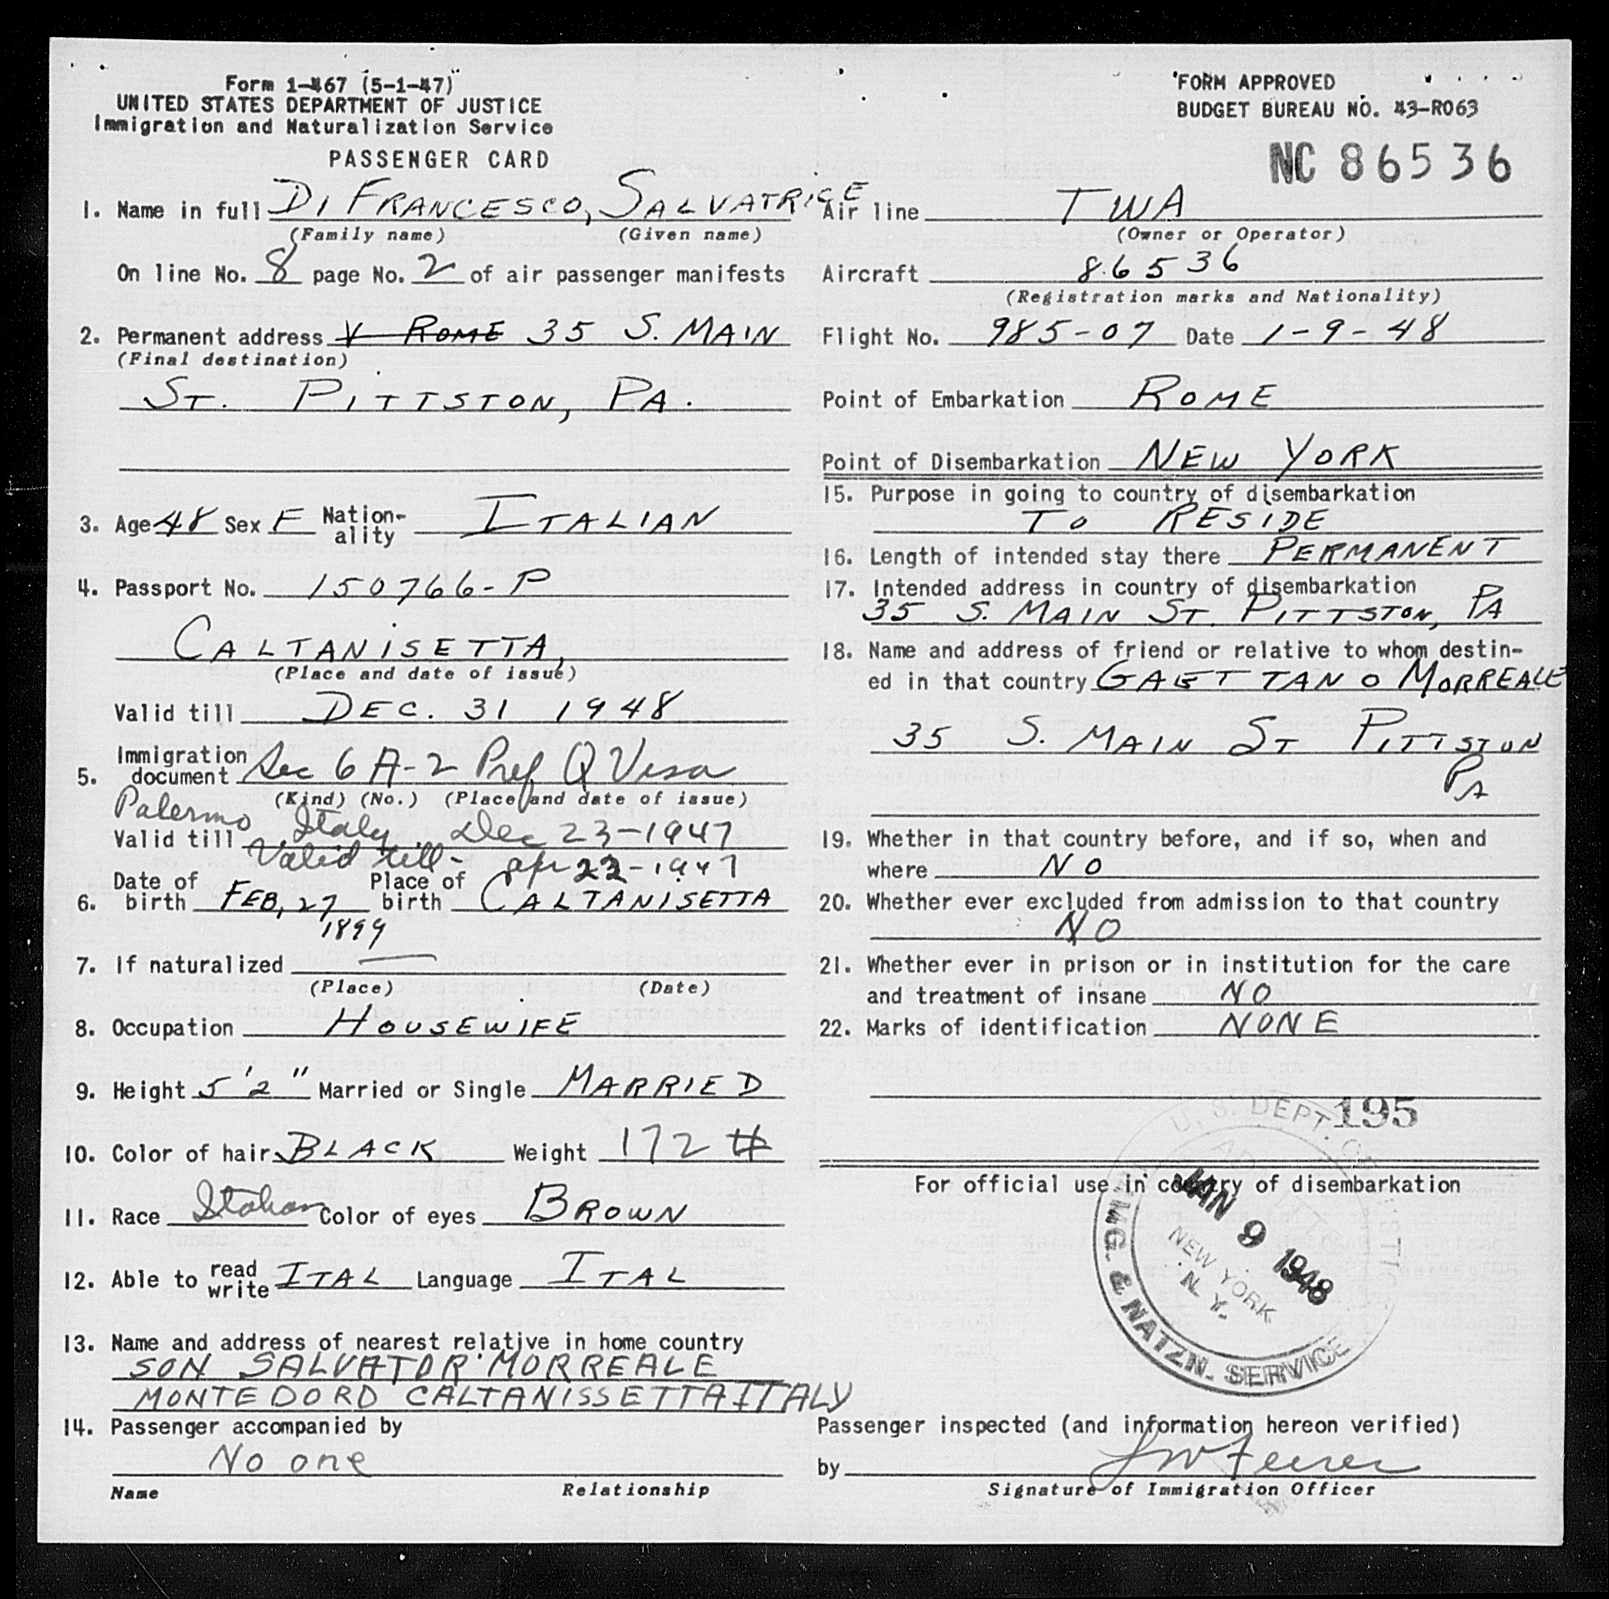 Form 1-467 (5-1-47)
UNITED STATES DEPARTMENT OF JUSTICE
Immigration and Naturalization Service
PASSENGER CARD
FORM APPROVED
BUDGET BUREAU NO. 43-R063
NC 86536
1. Name in full DI FRANCESCO, SALVATRICE
(Family name) (Given name)
On line No. 8 page No. 2 of air passenger manifests
2. Permanent address V ROME 35 S. MAIN
(Final destination)
ST. PITTSTON, PA.
3. Age 48 Sex F Nationality ITALIAN
4. Passport No. 150766-P
CALTANISETTA,
(Place and date of issue)
Valid till DEC. 31 1948
5. Immigration document Sec 6 A-2 Pref Q Visa
(Kind) (No.) (Place and date of issue)
Palermo Italy Dec 23-1947
Valid till
Valid till - apr 22-1947
6. Date of birth FEB, 27 1899 Place of birth CALTANISETTA
7. If naturalized —
(Place) (Date)
8. Occupation HOUSEWIFE
9. Height 5'2" Married or Single MARRIED
10. Color of hair BLACK Weight 172 #
11. Race Italian Color of eyes BROWN
12. Able to read write ITAL Language ITAL
13. Name and address of nearest relative in home country
SON SALVATOR MORREALE
MONTEDORD CALTANISSETTA ITALY
14. Passenger accompanied by
No one
Name Relationship
Air line TWA
(Owner or Operator)
Aircraft 86536
(Registration marks and Nationality)
Flight No. 985-07 Date 1-9-48
Point of Embarkation ROME
Point of Disembarkation NEW YORK
15. Purpose in going to country of disembarkation
TO RESIDE
16. Length of intended stay there PERMANENT
17. Intended address in country of disembarkation
35 S. MAIN ST. PITTSTON, PA
18. Name and address of friend or relative to whom destin-
ed in that country GAETTANO MORREALE
35 S. MAIN ST PITTSTON
PA
19. Whether in that country before, and if so, when and
where NO
20. Whether ever excluded from admission to that country
NO
21. Whether ever in prison or in institution for the care
and treatment of insane NO
22. Marks of identification NONE
195
For official use in country of disembarkation
U. S. DEPT. OF
IMG. & NATZN. SERVICE
JAN 9 1948
NEW YORK
N. Y.
Passenger inspected (and information hereon verified)
by
Signature of Immigration Officer